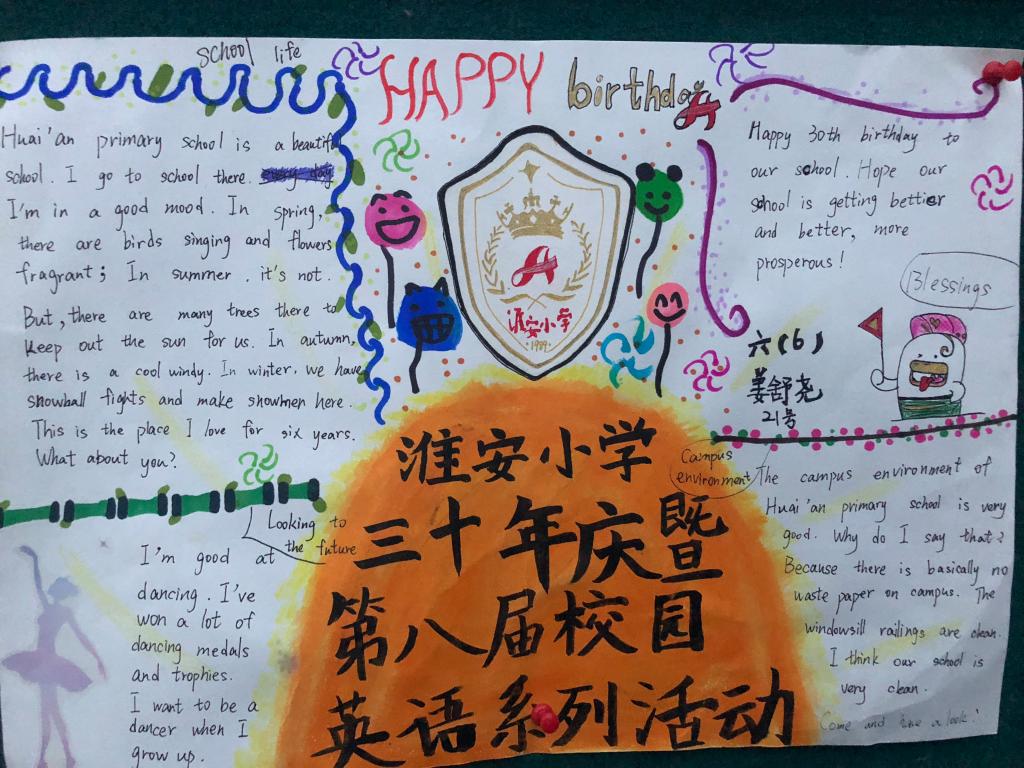 school life
Huai'an primary school is a beautiful
school. I go to school there.
I'm in a good mood. In spring,
there are birds singing and flowers
fragrant; In summer, it's not.
But, there are many trees there to
keep out the sun for us. In autumn,
there is a cool windy. In winter. we have
snowball fights and make snowmen here.
This is the place I love for six years.
What about you?
HAPPY birthday
淮安小学
·1989·
Happy 30th birthday to
our school. Hope our
school is getting better
and better, more
prosperous!
Blessings
六(6)
姜舒尧
21号
淮安小学
三十年庆暨
第八届校园
英语系列活动
Looking to
the future
I'm good at
dancing. I've
won a lot of
dancing medals
and trophies.
I want to be a
dancer when I
grow up.
Campus
environment
The campus environment of
Huai'an primary school is very
good. Why do I say that?
Because there is basically no
waste paper on campus. The
windowsill railings are clean.
I think our school is
very clean.
Come and have a look!